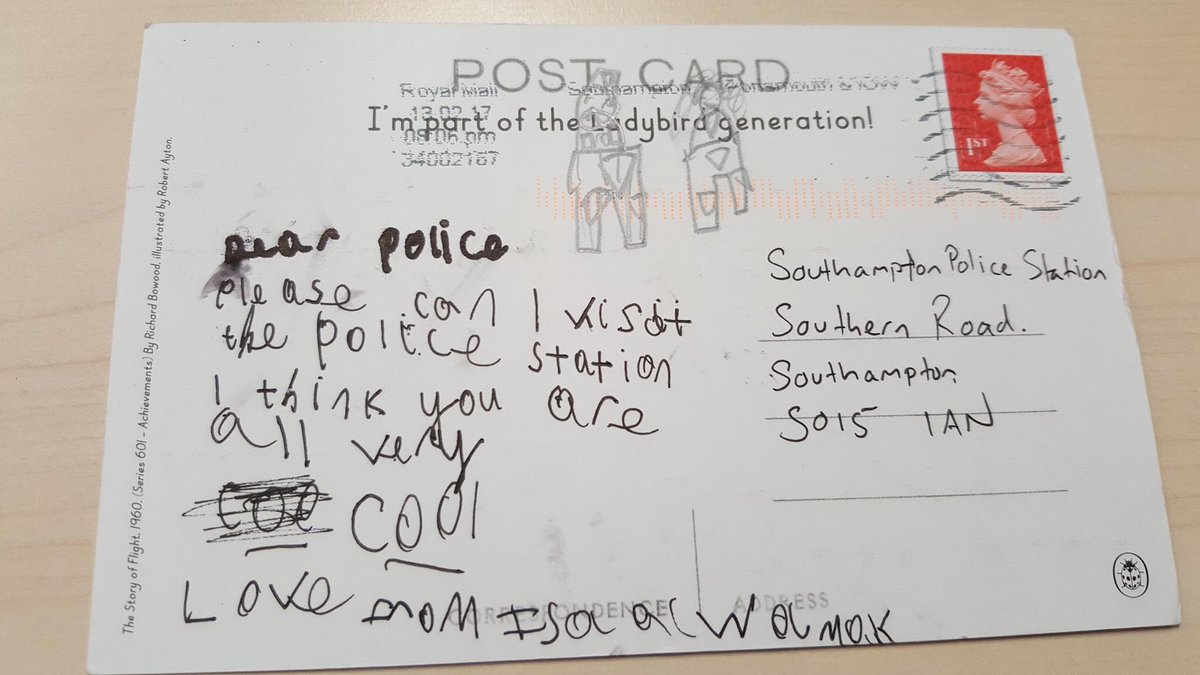 POST CARD
Royal Mail
Southampton Portsmouth & IOW
13.02.17
08:06 pm
34002167
I'm part of the Ladybird generation!
1ST
The Story of Flight, 1960. (Series 601 – Achievements) By Richard Bowood, illustrated by Robert Ayton.
Dear police
please can I visit
the police station
I think you are
all very
coo cool
Love from Isaac Wamak
Southampton Police Station
Southern Road.
Southampton
SO15 1AN
CORRESPONDENCE
ADDRESS